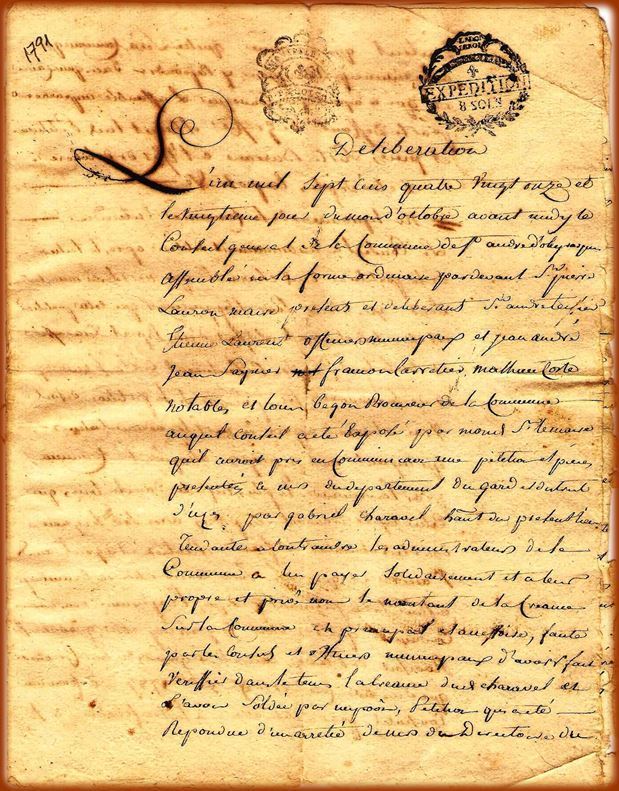 1791
EXPEDITION
8 SOLS
Deliberation
L'an mil sept cens quatre vingt onze et
le vingtieme jour du mois d'octobre avant midy le
Conseil general de la Commune de St andré d'oleyrargues
assemblé en la forme ordinaire pardevant Sr pierre
Lauron maire presents et deliberant Sr andre
Etienne Laurent officiers municipaux et jean andré
Jean Saynier françon Carretier, mathieu Corte
notables et louis begon Procureur de la Commune
auquel Conseil a été Exposé par mond Sr le maire
quil auroit pris en Communicaon une petition et pieces
presentées a mrs du departement du gard et district
d'uzes par gabriel charavel hant du present lieu
Tendante a contraindre les administrateurs de la
Commune a luy payer Solidairement et a leur
propre et privé nom le montant de la Creance
Sur la Commune en principal et accessoire, faute
par les Consuls et officiers municipaux d'avoir fait
Veriffier dans le tems la Creance dud charavel et
d'avoir Soldée par impoôn, Petition qui a été
Repondue d'un arretté de mrs du Directoire du